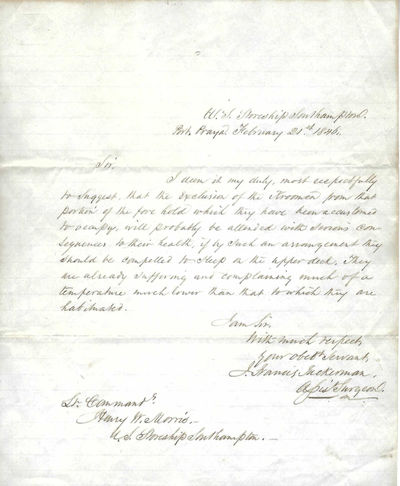 U.S. Storeship Southampton.
Port Praya February 21.st 1846.
Sir.
I deem it my duty, most respectfully
to suggest, that the exclusion of the Kroomen from that
portion of the fore hold which they have been accustomed
to occupy, will probably be attended with serious con
sequences to their health, if by such an arrangement they
should be compelled to sleep on the upper deck, They
are already suffering and complaining much of a
temperature much lower than that to which they are
habituated.
I am Sir,
With much respect,
Your obedt Servant,
J. Francis Tuckerman.
Asst Surgeon.
Lt. Commandt
Henry W. Morris.—
U.S. Storeship Southampton.—